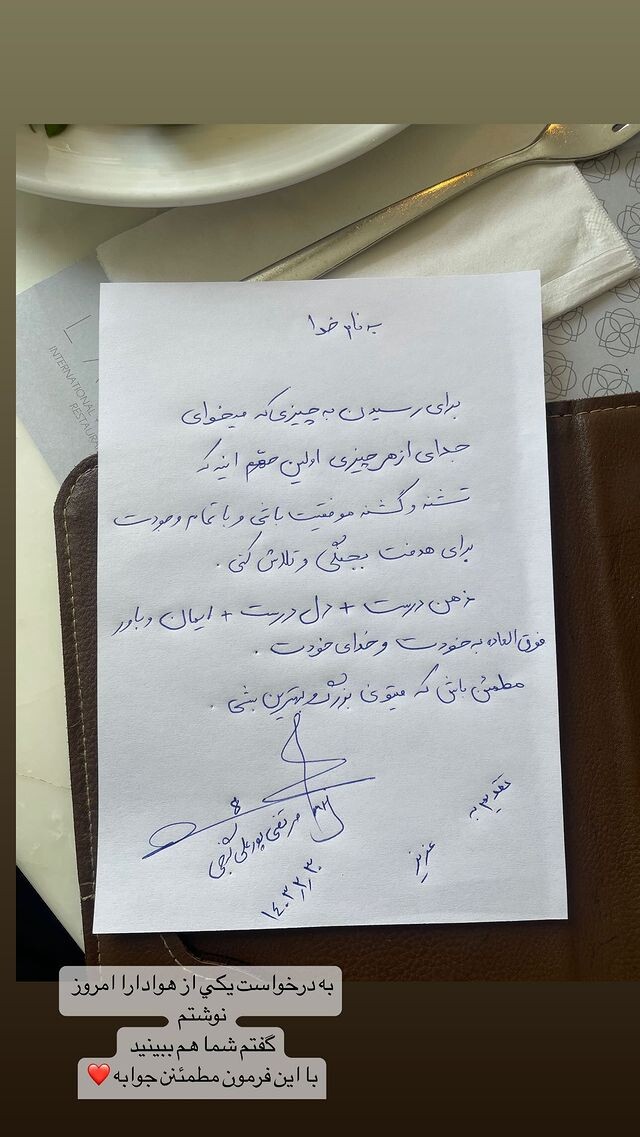 به نام خدا
برای رسیدن به چیزی که میخوای
جدای از هر چیزی اولین مهم اینه که
تشنه و گشنه موفقیت باشی و با تمام وجودت
برای هدفت بجنگی و تلاش کنی .
ذهن درست + دل درست + ایمان و باور
فوق العاده به خودت و خدای خودت .
مطمئن باش که میتونی بزرگ و بهترین بشی .
تقدیم به
عزیز
مرتضی پورعلی گنجی
۱۴۰۳,۲,۳۰
INTERNATIONAL
RESTAURA
به درخواست يكي از هوادارا امروز
نوشتم
گفتم شما هم ببينيد
با اين فرمون مطمئنن جوابه ❤️